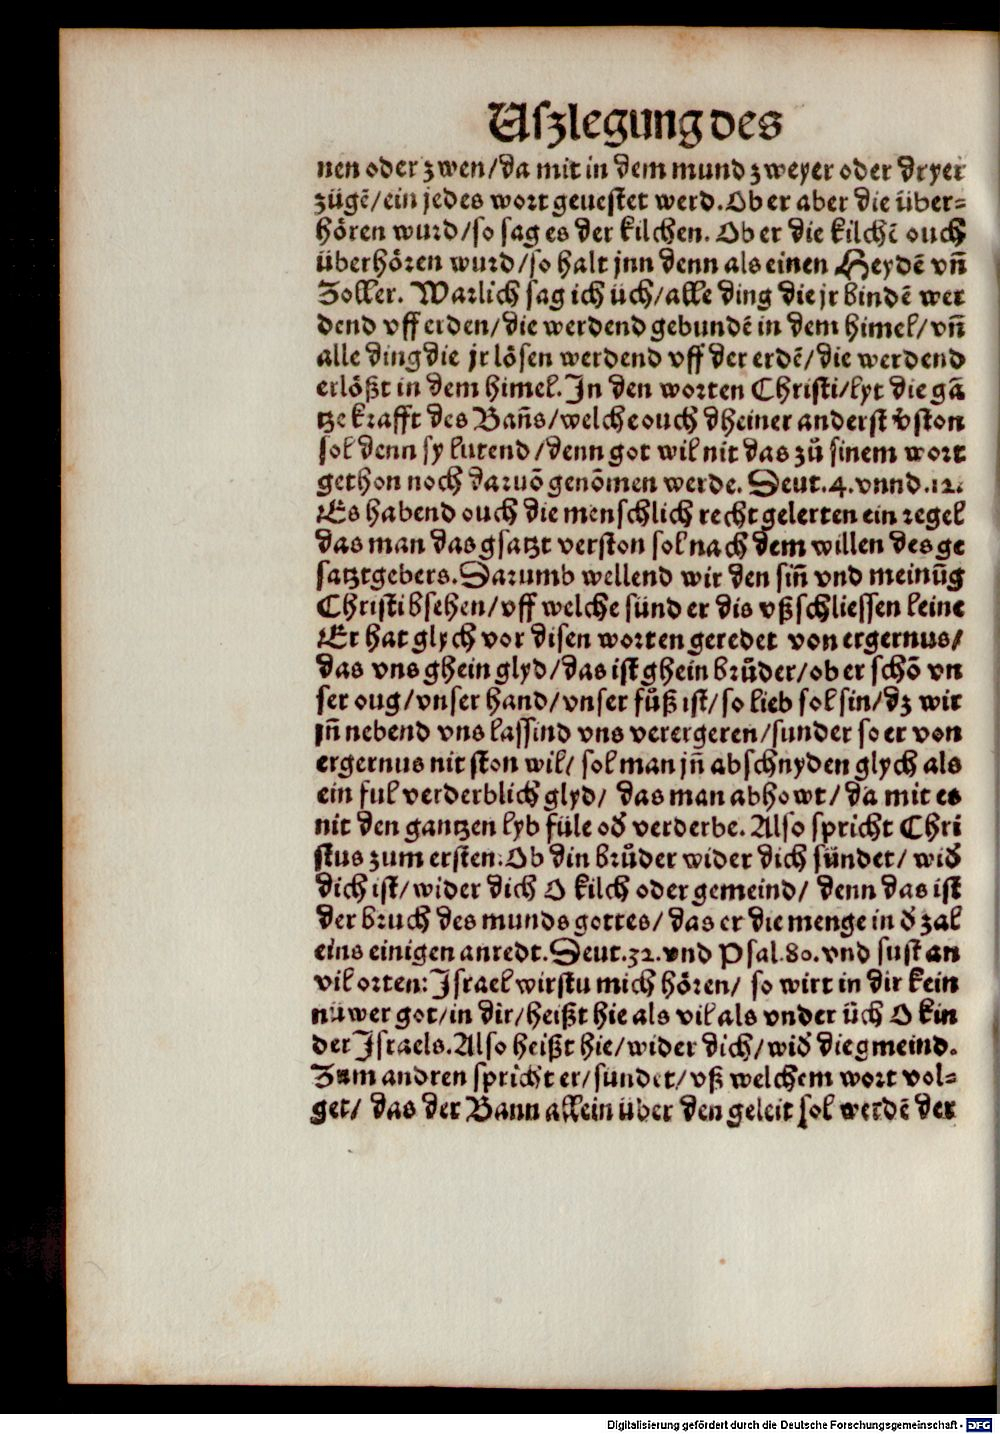 Uſzlegung des
nen oder zwen/da mit in dem mund zweyer oder dryer
zügẽ/ein jedes wort geueſtet werd. Ob er aber die über⸗
hören wurd/ſo ſag es der kilchen. Ob er die kilchẽ ouch
überhören wurd/ſo halt jnn denn als einen Heydẽ vñ
Zoller. Warlich ſag ich üch/alle ding die jr bindẽ wer
dend vff erden/die werdend gebundẽ in dem himel/vñ
alle ding die jr löſen werdend vff der erdẽ/die werdend
erlößt in dem himel. In den worten Chriſti/lyt die gã
tze krafft des Bañs/welche ouch dheiner anderſt v̄ſton
ſol denn ſy lutend/denn got wil nit das zů ſinem wort
gethon noch daruõ genõmen werde. Deut.4.vnnd.12.
Es habend ouch die menſchlich recht gelerten ein regel
das man das gſatzt verſton ſol nach dem willen des ge
ſatztgebers. Darumb wellend wir den ſiñ vnd meinũg
Chriſti bſehen/vff welche ſünd er dis vßſchlieſſen leine
Er hat glych vor diſen worten geredet von ergernus/
das vns ghein glyd/das iſt ghein brůder/ob er ſchõ vn
ſer oug/vnſer hand/vnſer fůß iſt/ſo lieb ſol ſin/dz wir
jñ nebend vns laſſind vns verergeren/ſunder ſo er von
ergernus nit ſton wil/ ſol man jñ abſchnyden glych als
ein ful verderblich glyd/ das man abhowt/da mit es
nit den gantzen lyb füle oð verderbe. Alſo ſpricht Chri
ſtus zum erſten. Ob din brůder wider dich ſündet/ wið
dich iſt/wider dich O kilch oder gemeind/ denn das iſt
der bruch des munds gottes/das er die menge in ð zal
eins einigen anredt. Deut.32.vnd Pſal.80.vnd ſuſt an
vil orten: Iſrael wirſtu mich hören/ ſo wirt in dir kein
nüwer got/in dir/heißt hie als vil als vnder üch O kin
der Iſraels. Alſo heißt hie/wider dich/wið die gmeind.
Zum andren ſpricht er/ſündet/vß welchem wort vol⸗
get/ das der Bann allein über den geleit ſol werdẽ der
Digitalisierung gefördert durch die Deutsche Forschungsgemeinschaft - DFG